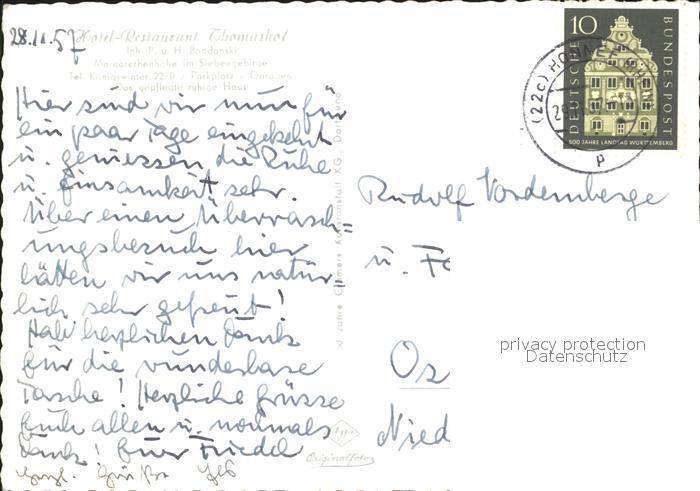 28.11.57
Hotel-Restaurant Thomashof
Inh. P. u. H. Bondanski
Margarethenhöhe im Siebengebirge
Tel. Königswinter 2270 / Parkplatz - Garagen
Das gepflegte ruhige Haus
Hier sind wir nun für
ein paar Tage eingekehrt
u. geniessen die Ruhe
u. Einsamkeit sehr.
Über einen Überrasch=
ungsbesuch hier
hätten wir uns natür
lich sehr gefreut!
Hab herzlichen Dank
für die wunderbare
Tasche! Herzliche Grüsse
Euch allen u. nochmals
Dank! Eure Friedel
Herzl. Grüße
Jahre Cramers Kunstanstalt KG., Dortmund
Agfa
Originalfoto
10
DEUTSCHE
BUNDESPOST
500 JAHRE LANDTAG WÜRTTEMBERG
(22c) HONNEF
Rudolf Vordemberge
u. Fa
Os
Nied
privacy protection
Datenschutz